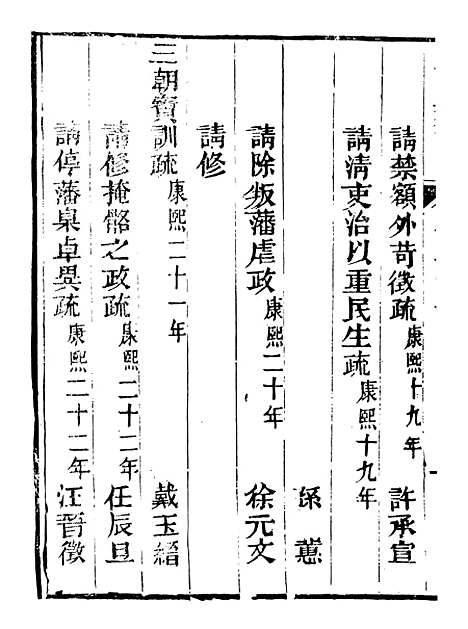 請禁額外苛徵疏康熙十九年 許承宣
請清吏治以重民生疏康熙十九年
孫蕙
請除叛藩虐政康熙二十年 徐元文
請修
三朝寶訓疏康熙二十一年 戴玉縉
請修掩骼之政疏康熙二十二年 任辰旦
請停藩臬卓異疏康熙二十二年 汪晉徵